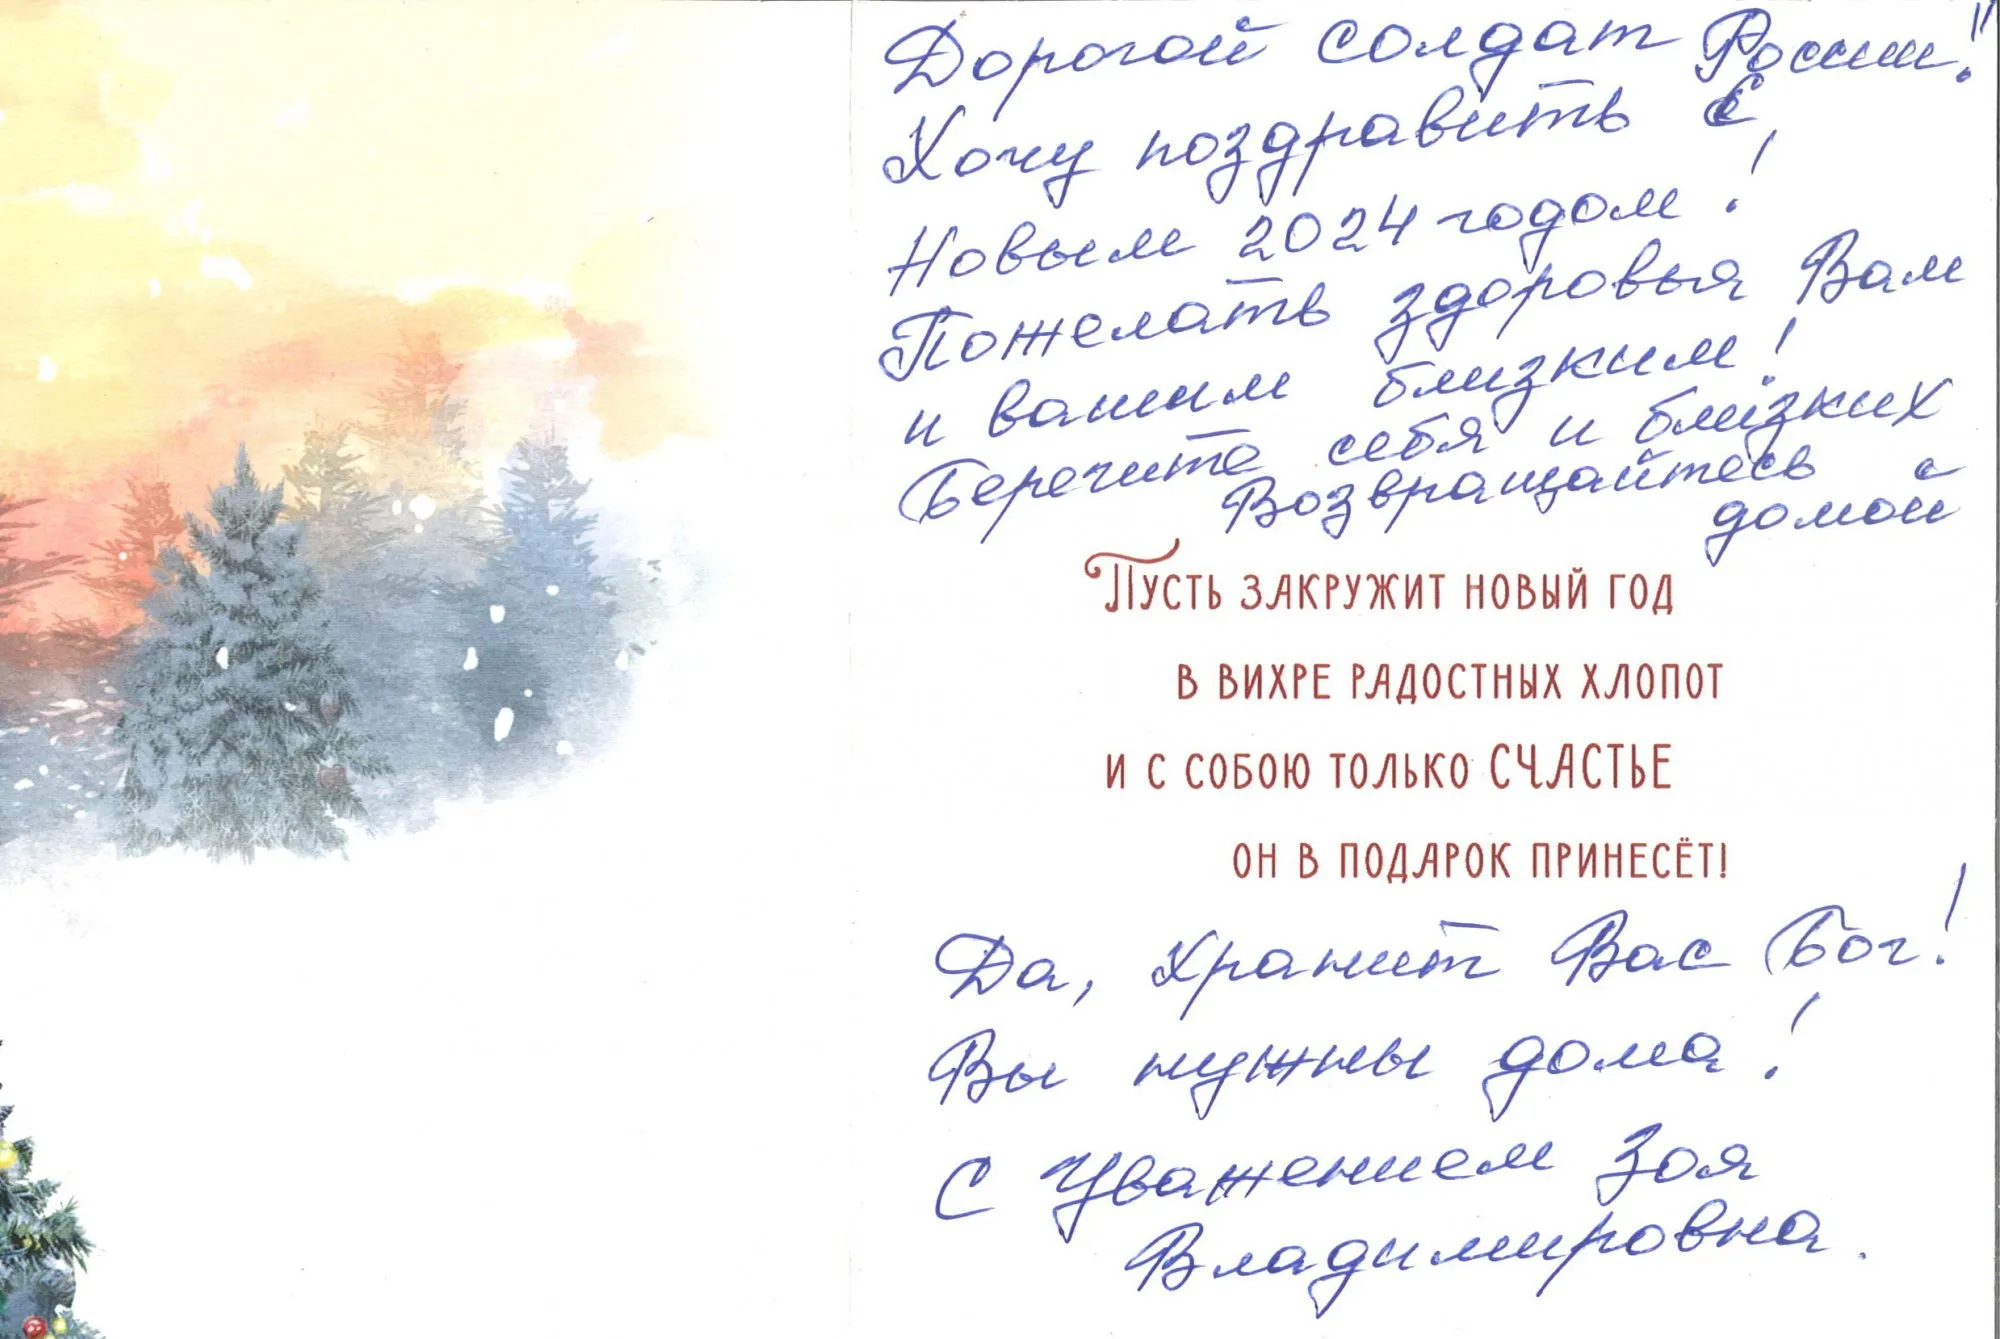 Дорогой солдат России!!
Хочу поздравить с
Новым 2024 годом!
Пожелать здоровья Вам
и вашим близким!
Берегите себя и близких
Возвращайтесь с
домой
Пусть закружит Новый год
в вихре радостных хлопот
и с собою только СЧАСТЬЕ
он в подарок принесёт!
Да, хранит Вас Бог!
Вы нужны дома!
С Уважением Зоя
Владимировна.